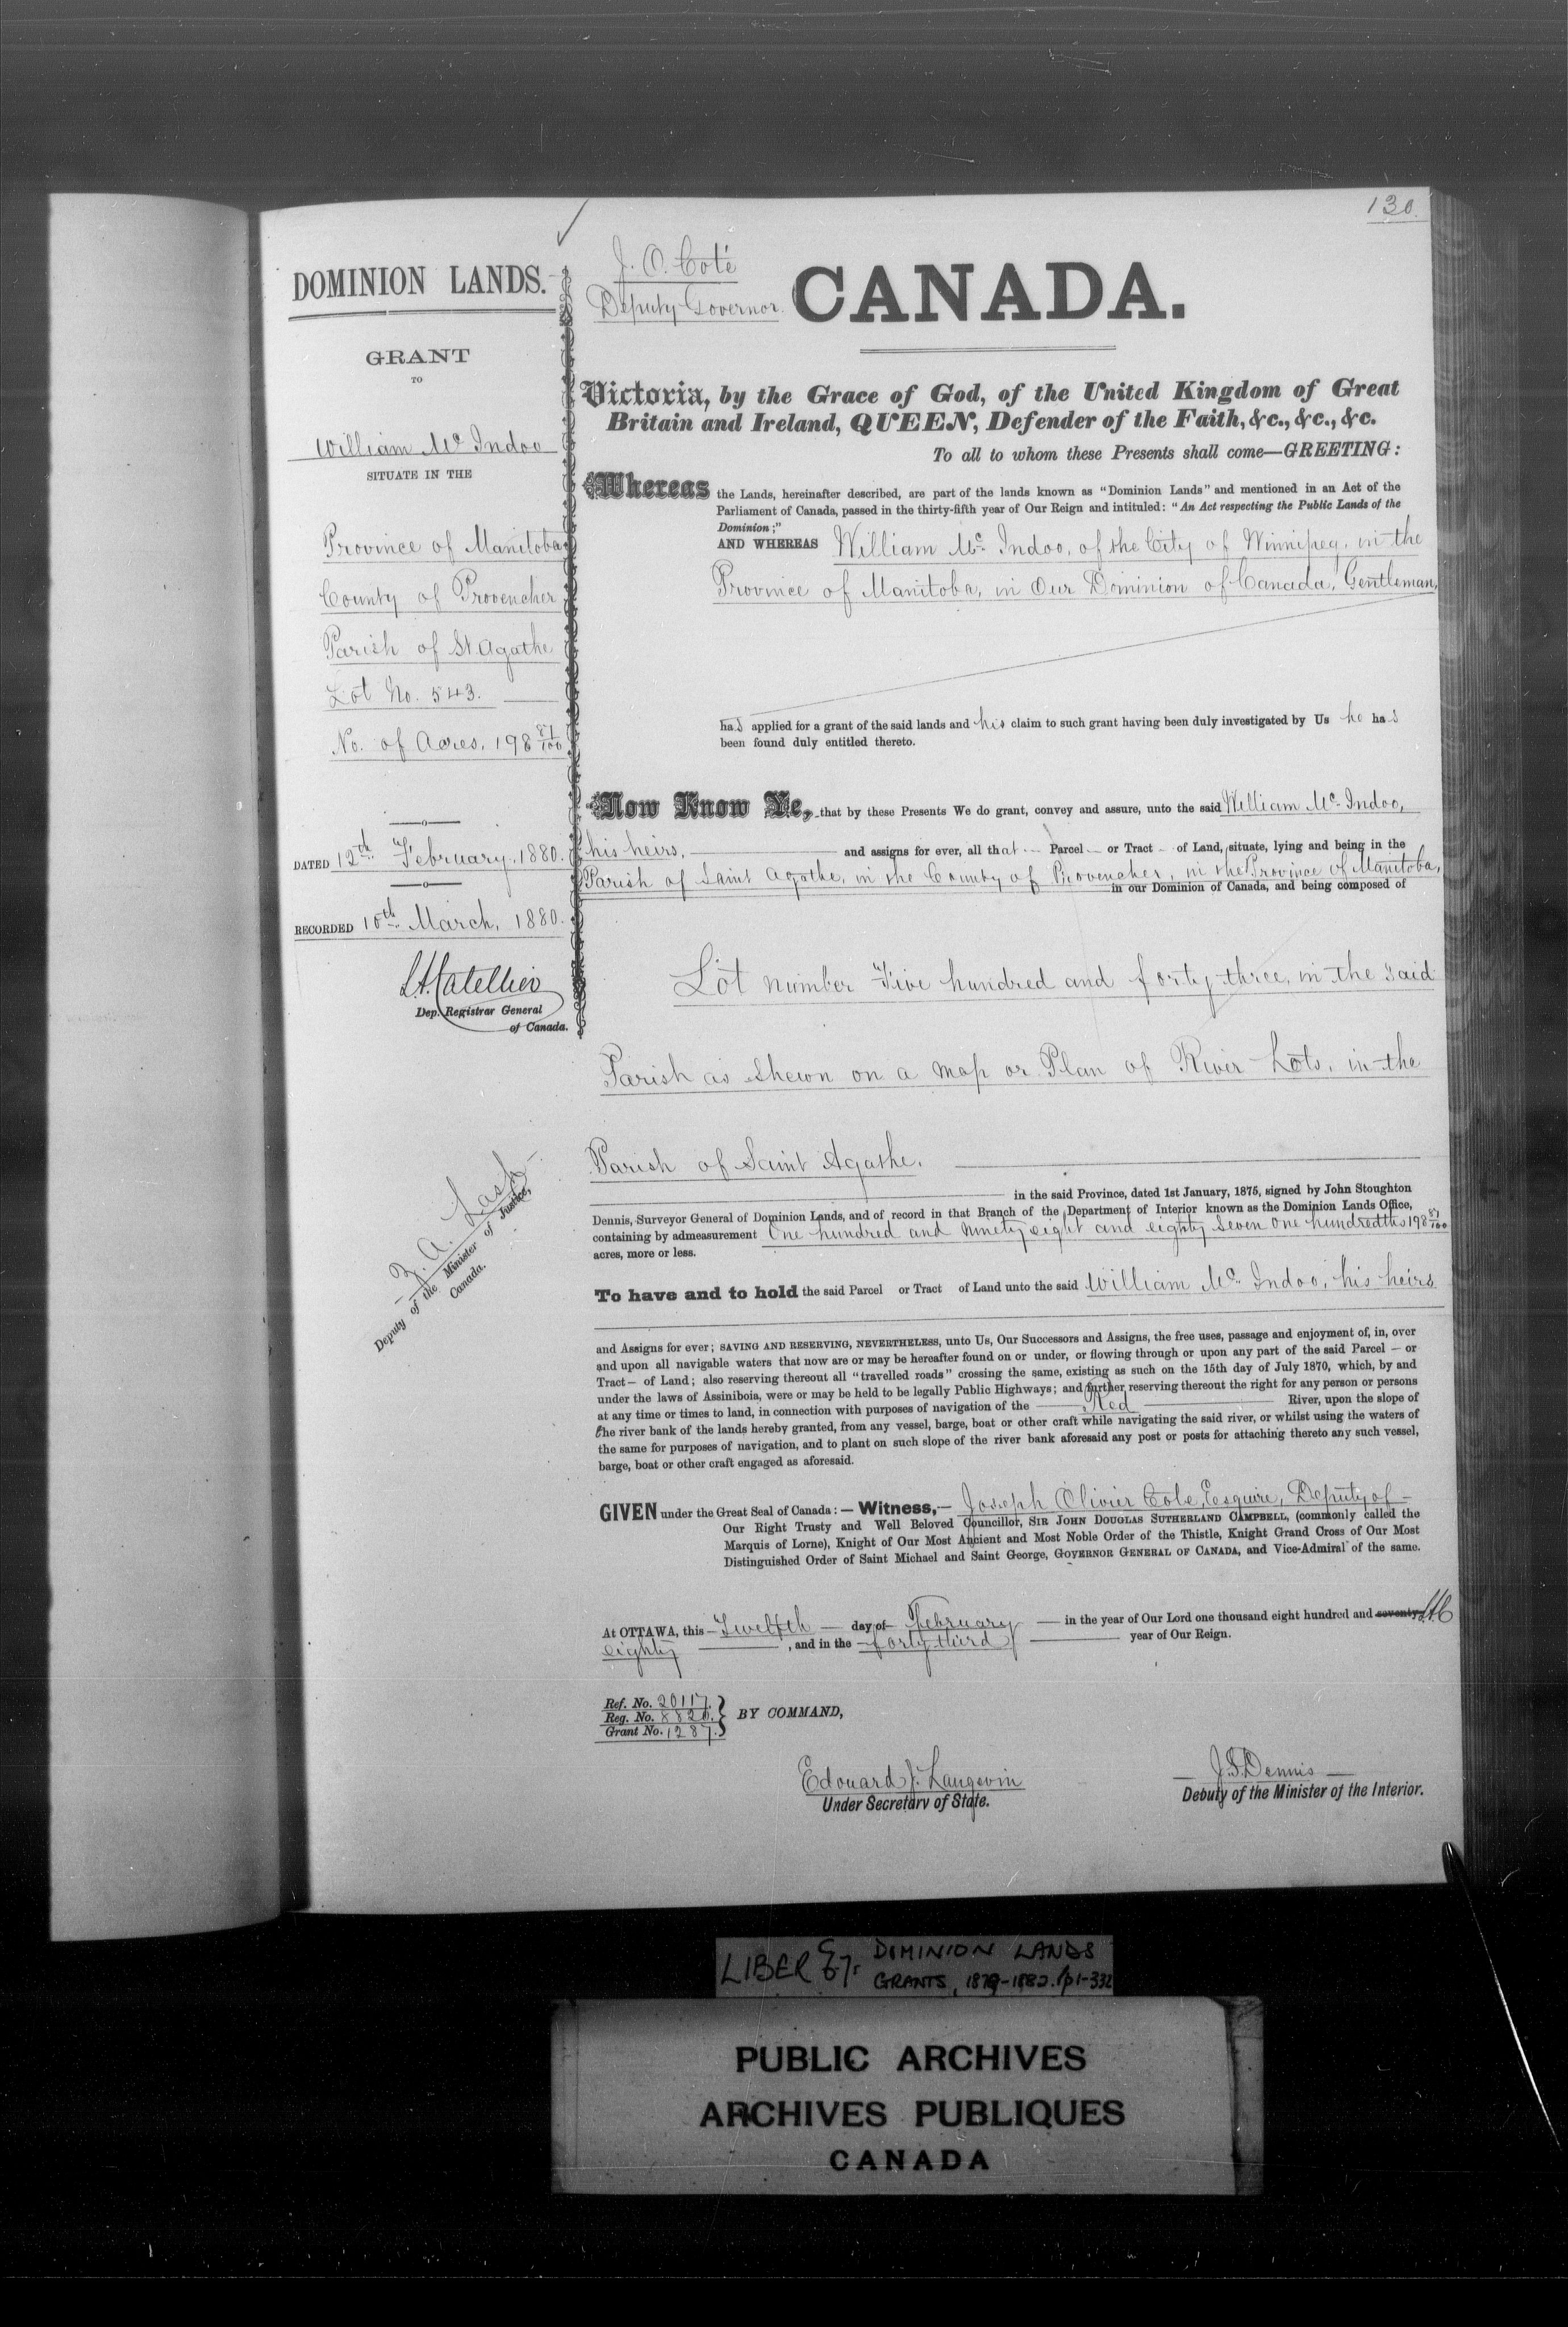 130.
DOMINION LANDS.
GRANT
TO
William Mc Indoo
SITUATE IN THE
Province of Manitoba
County of Provencher
Parish of St Agathe
Lot No. 543.
No. of Acres, 198 87/100
DATED 12th February, 1880.
RECORDED 10th March, 1880.
L.A. Catellier
Dep. Registrar General
of Canada.
Z. A. Lash
Deputy of the Minister of Justice,
Canada.
J. O. Coté
Deputy Governor.
CANADA.
Victoria, by the Grace of God, of the United Kingdom of Great
Britain and Ireland, QUEEN, Defender of the Faith, &c., &c., &c.
To all to whom these Presents shall come—GREETING:
Whereas the Lands, hereinafter described, are part of the lands known as "Dominion Lands" and mentioned in an Act of the
Parliament of Canada, passed in the thirty-fifth year of Our Reign and intituled: "An Act respecting the Public Lands of the
Dominion;"
AND WHEREAS William Mc Indoo, of the City of Winnipeg, in the
Province of Manitoba, in Our Dominion of Canada, Gentleman,
has applied for a grant of the said lands and his claim to such grant having been duly investigated by Us he has
been found duly entitled thereto.
Now Know Ye, that by these Presents We do grant, convey and assure, unto the said William Mc Indoo,
his heirs, and assigns for ever, all that Parcel or Tract of Land, situate, lying and being in the
Parish of Saint Agathe, in the County of Provencher, in the Province of Manitoba,
in our Dominion of Canada, and being composed of
Lot number Five hundred and forty three, in the said
Parish as shewn on a map or Plan of River Lots, in the
Parish of Saint Agathe.
in the said Province, dated 1st January, 1875, signed by John Stoughton
Dennis, Surveyor General of Dominion Lands, and of record in that Branch of the Department of Interior known as the Dominion Lands Office,
containing by admeasurement One hundred and ninety eight and eighty seven one hundredths 198 87/100
acres, more or less.
To have and to hold the said Parcel or Tract of Land unto the said William Mc Indoo, his heirs
and Assigns for ever; SAVING AND RESERVING, NEVERTHELESS, unto Us, Our Successors and Assigns, the free uses, passage and enjoyment of, in, over
and upon all navigable waters that now are or may be hereafter found on or under, or flowing through or upon any part of the said Parcel — or
Tract — of Land; also reserving thereout all "travelled roads" crossing the same, existing as such on the 15th day of July 1870, which, by and
under the laws of Assiniboia, were or may be held to be legally Public Highways; and further reserving thereout the right for any person or persons
at any time or times to land, in connection with purposes of navigation of the Red River, upon the slope of
the river bank of the lands hereby granted, from any vessel, barge, boat or other craft while navigating the said river, or whilst using the waters of
the same for purposes of navigation, and to plant on such slope of the river bank aforesaid any post or posts for attaching thereto any such vessel,
barge, boat or other craft engaged as aforesaid.
GIVEN under the Great Seal of Canada: — Witness,— Joseph Olivier Coté, Esquire, Deputy of
Our Right Trusty and Well Beloved Councillor, SIR JOHN DOUGLAS SUTHERLAND CAMPBELL, (commonly called the
Marquis of Lorne), Knight of Our Most Ancient and Most Noble Order of the Thistle, Knight Grand Cross of Our Most
Distinguished Order of Saint Michael and Saint George, GOVERNOR GENERAL OF CANADA, and Vice-Admiral of the same.
At OTTAWA, this Twelfth day of February in the year of Our Lord one thousand eight hundred and seventy LAC
eighty, and in the forty third year of Our Reign.
Ref. No. 20117.
Reg. No. 8820.
Grant No. 1287.
BY COMMAND,
Edouard J. Langevin
Under Secretary of State.
J.S. Dennis
Deputy of the Minister of the Interior.
LIBER E7: DOMINION LANDS
GRANTS, 1879-1882. pp1-332
PUBLIC ARCHIVES
ARCHIVES PUBLIQUES
CANADA